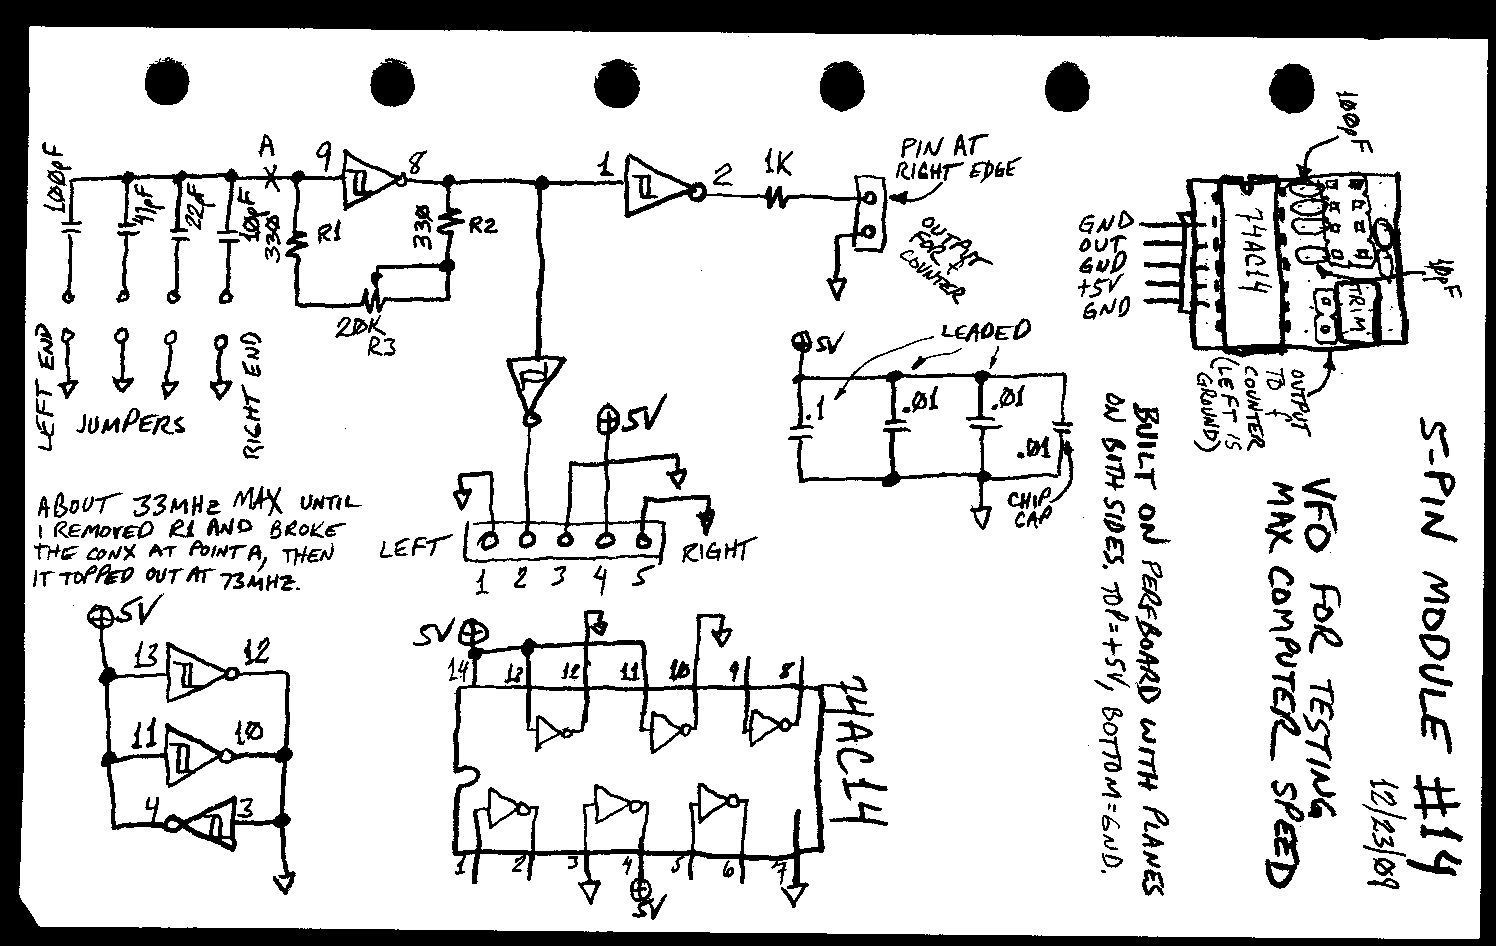 100pF
47pF
22pF
10pF
A
9
8
330
R1
330
R2
20K
R3
1
2
1K
PIN AT
RIGHT EDGE
OUTPUT
FOR +
COUNTER
LEFT END
JUMPERS
RIGHT END
ABOUT 33MHz MAX UNTIL
I REMOVED R1 AND BROKE
THE CONX AT POINT A, THEN
IT TOPPED OUT AT 73MHz.
5V
LEFT
RIGHT
1 2 3 4 5
5V
LEADED
.1
.01
.01
.01
CHIP
CAP
5V
13
12
11
10
4
3
5V
14 13 12 11 10 9 8
1 2 3 4 5 6 7
5V
74AC14
100pF
GND
OUT
GND
+5V
GND
74AC14
TRIM
10pF
OUTPUT
TO +
COUNTER
(LEFT IS
GROUND)
5-PIN MODULE #14
12/23/09
VFO FOR TESTING
MAX COMPUTER SPEED
BUILT ON PERFBOARD WITH PLANES
ON BOTH SIDES. TOP=+5V, BOTTOM=GND.